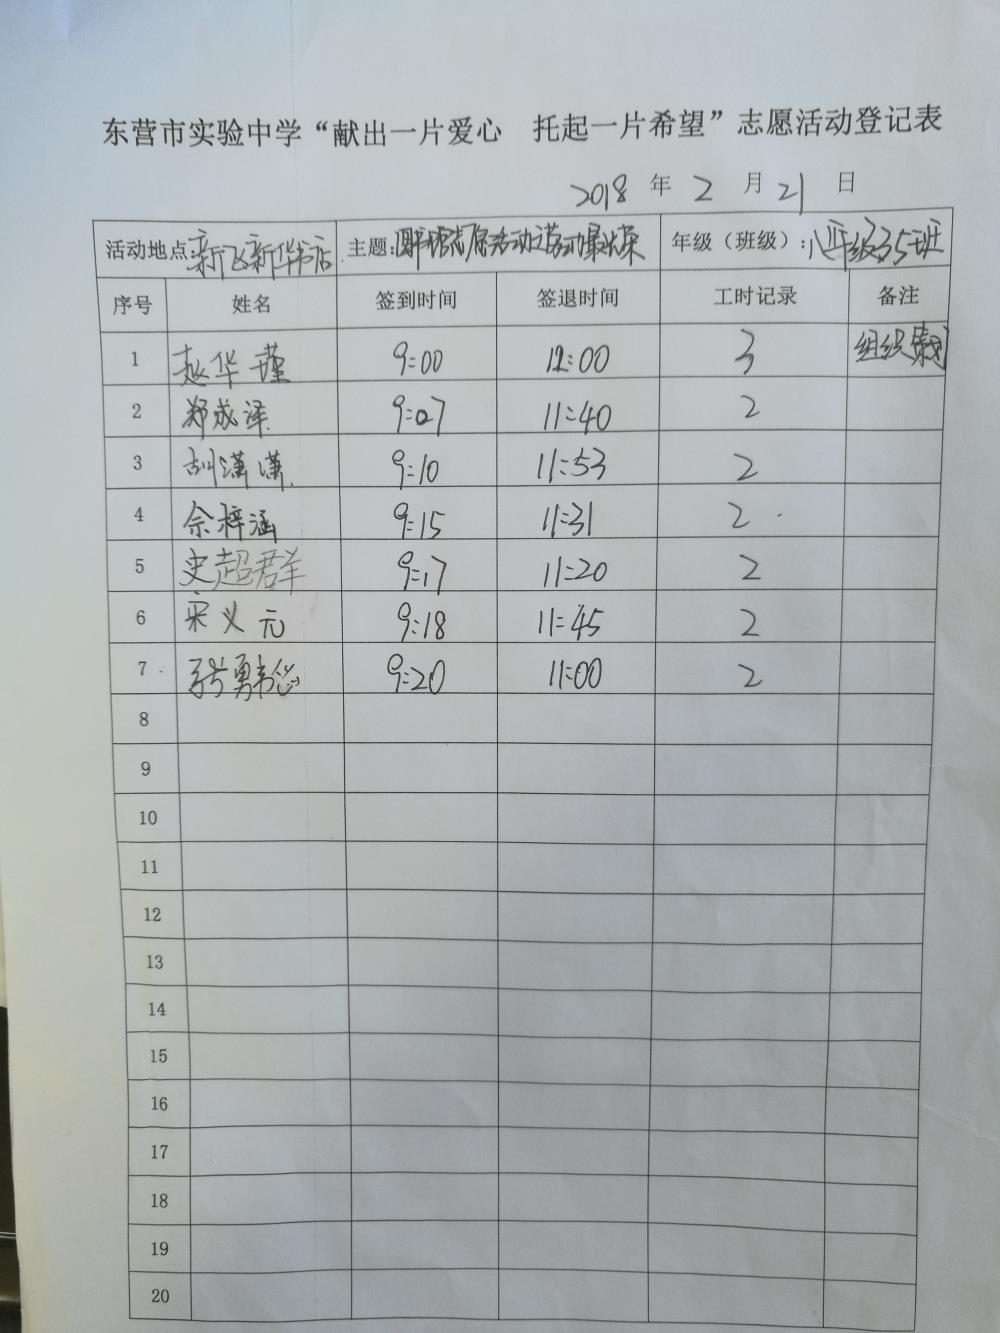 东营市实验中学“献出一片爱心 托起一片希望”志愿活动登记表
2018 年 2 月 21 日
活动地点:新飞新华书店 主题: 志愿活动 劳动最光荣 年级（班级）:八年级35班
序号 姓名 签到时间 签退时间 工时记录 备注
1 赵华瑾 9:00 12:00 3 组织
2 郑成泽 9:07 11:40 2
3 胡潇潇 9:10 11:53 2
4 佘梓涵 9:15 11:31 2
5 史超群 9:17 11:20 2
6 宋义元 9:18 11:45 2
7 9:20 11:00 2
8
9
10
11
12
13
14
15
16
17
18
19
20